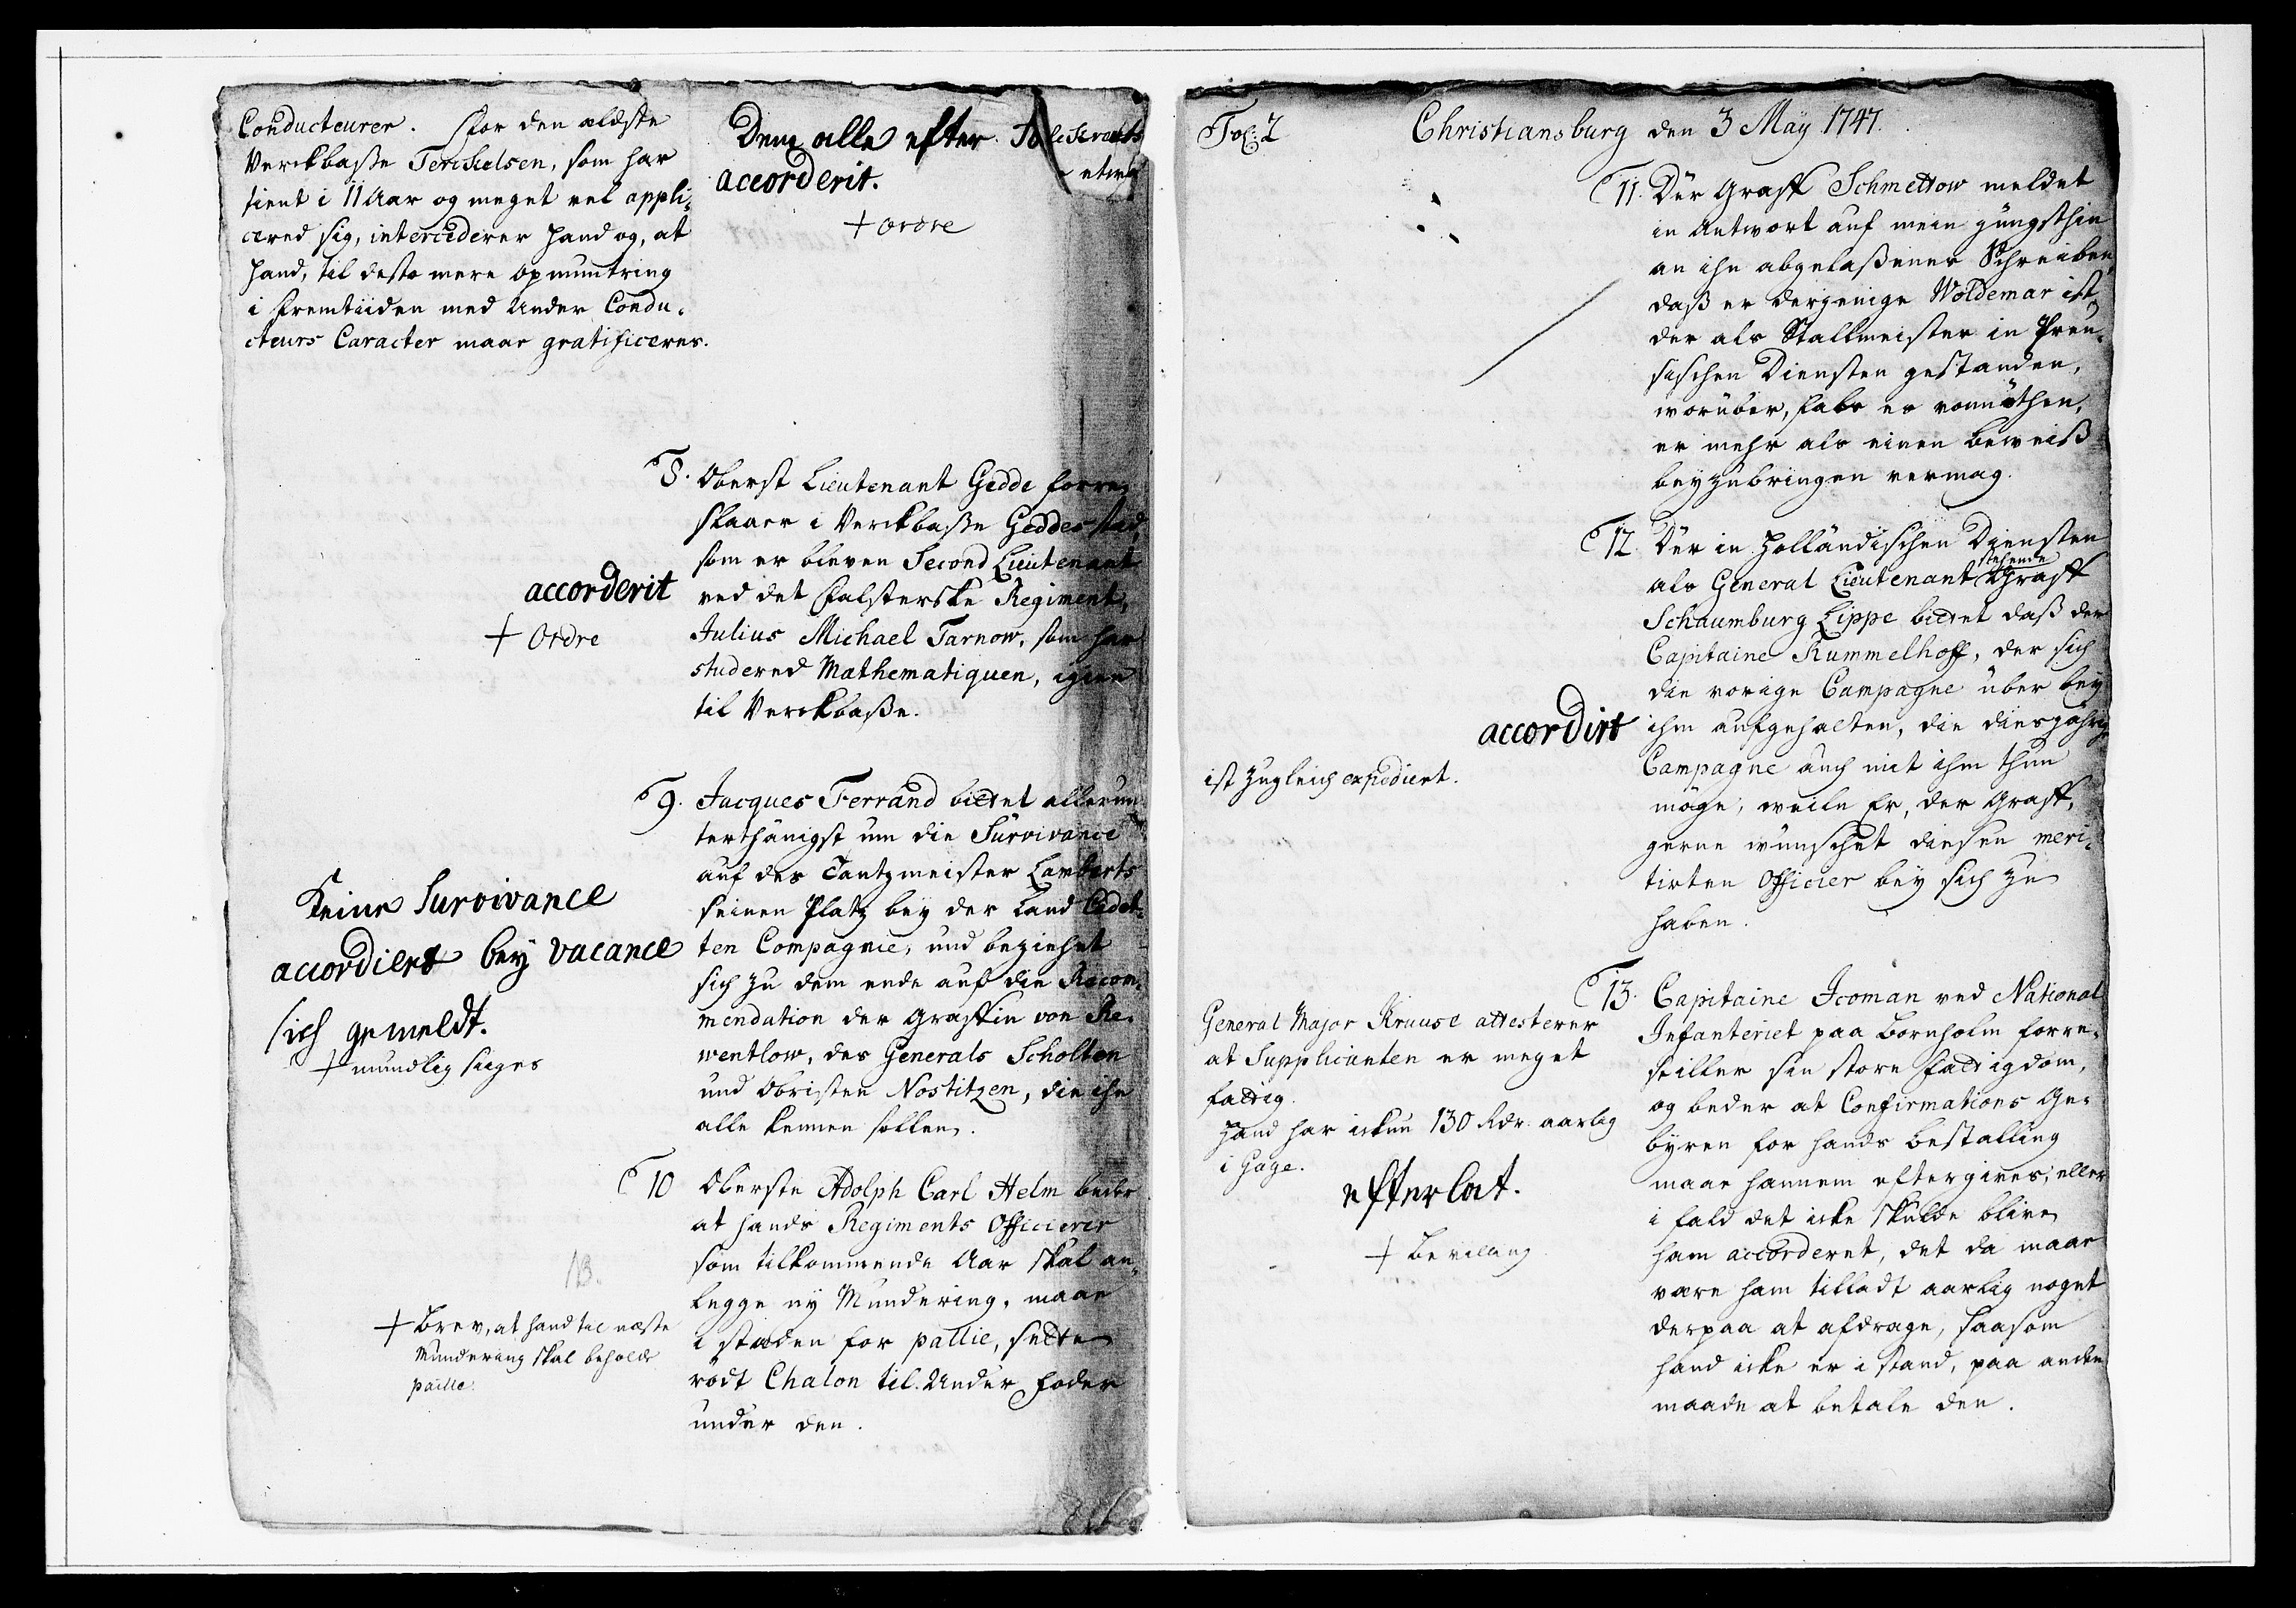 Conducteurer. For den ældste
Verckbasse Terckelsen, som har
tient i 11 Aar og meget vel appli-
cered sig, intercederer hand og, at
hand, til desto mere opmuntring
i Fremtiiden med Under Condu-
cteurs Caracter maae gratificeres.
Dem alle efter
accorderit.
+ Ordre
8. Oberst Lieutenant Gedde forre-
slaaer i Verckbasse Geddes stæd,
som er bleven Second Lieutenant
ved det Falsterske Regiment,
Julius Michael Tarnow, som har
studered Mathematiquen, igien
til Verckbasse.
accorderit
+ Ordre
9. Jacques Ferrand bittet allerun-
terthänigst um die Survivance
auf des Tantzmeister Lamberts
seinen Platz bey der Land Cadet-
ten Compagnie, und beziehet
sich zu dem ende auf die Recom-
mendation der Graffin von Re-
wentlow, des Generals Scholten
und Obristen Nostitzen, die ihn
alle kennen sollen.
Keine Survivance
accordiert bey vacance
sich gemeldt.
+ mundlig siges
10 Oberste Adolph Carl Helm beder
at hands Regiments Officierer
som tilkommende Aar skal an-
legge ny Mundering, maae
i stæden for pallie, sette
rödt Chalon til Under foder
under den.
NB.
+ Brev, at hand til næste
Mundering skal beholde
paille.
Fol: 2
Christiansburg den 3 May 1747.
11. Der Graff Schmettow meldet
in Antwort auf mein jüngsthin
an ihn abgelassenes Schreiben,
dass er derjenige Woldemar ist,
der als Stallmeister in Preu-
sischen Diensten gestanden,
worüber, fals es vonnöthen,
er mehr als einen beweiss
beyzubringen vermag.
12. Der in Holländischen Diensten
als General Lieutenant stehende Graff
Schaumburg Lippe bittet dass der
Capitaine Rummelhoff, der sich
die vorige Campagne über bey
ihm aufgehalten, die diesjährige
Campagne auch mit ihm thun
möge, weiln Er, der Graff,
gerne wünschet diesen meri-
tirten Officier bey sich zu
haben.
accordirt
ist zugleich expediert.
13. Capitaine Icoman ved National
Infanteriet paa Bornholm forre-
stiller sin store fattigdom,
og beder at Confirmations Ge-
byren for hands bestalling
maae hannem eftergives, eller
i fald det icke skulde blive
ham accorderet, det da maae
være ham tilladt aarlig noget
derpaa at afdrage, saasom
hand icke er i stand, paa anden
maade at betale den.
General Major Kruuse attesterer
at Supplicanten er meget
fattig.
Hand har ickun 130 Rdr. aarlig
i Gage.
efterlat.
+ bevilling